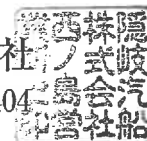 隠岐汽船
株式会社
西ノ島
社
04